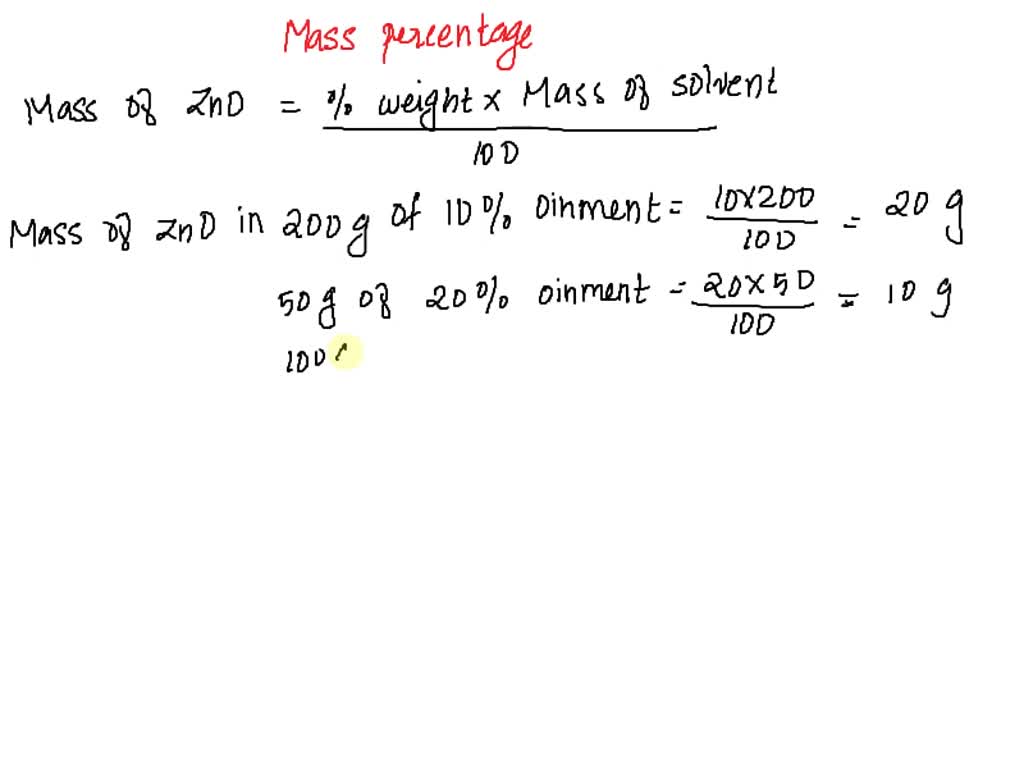 Mass percentage
Mass of ZnO = % weight x Mass of solvent
100
Mass of ZnO in 200g of 10% oinment = 10x200 = 20 g
100
50g of 20% oinment = 20x50 = 10 g
100
100